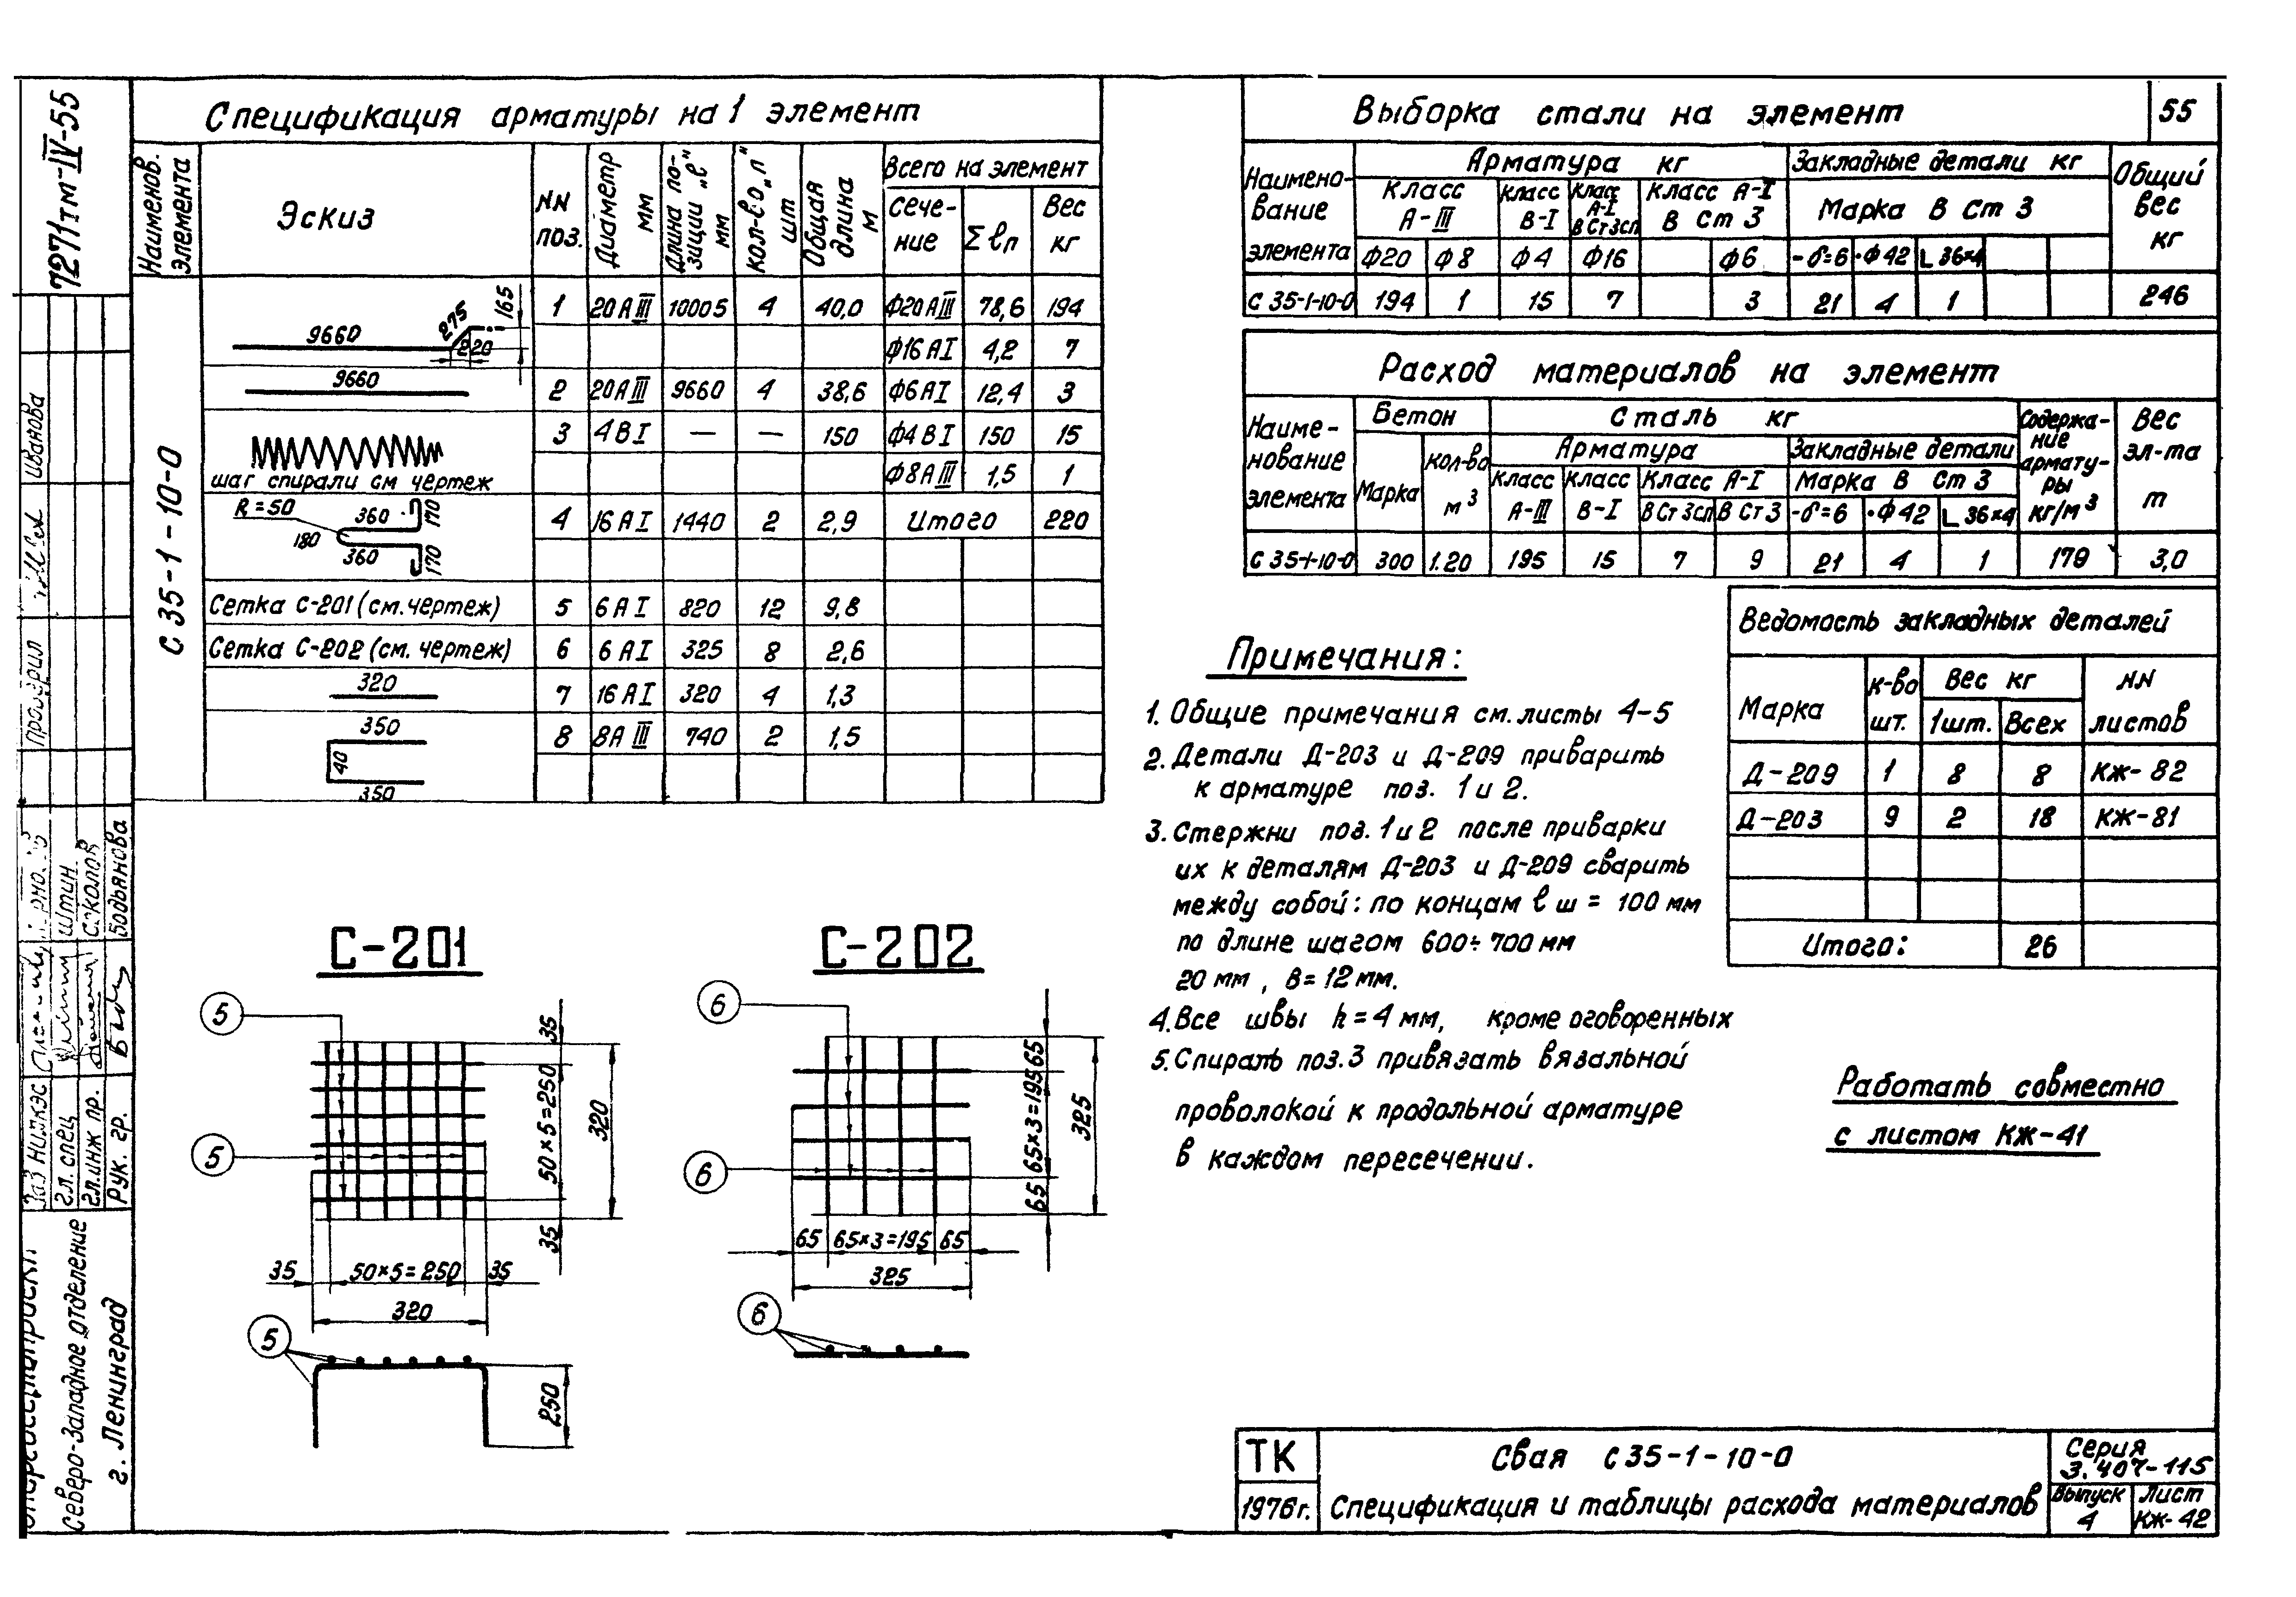 7271тм-IV-55
Спецификация арматуры на 1 элемент
Наименов. элемента
Эскиз
NN поз.
Диаметр мм
Длина позиции „ℓ" мм
Кол-во „п" шт
Общая длина м
Всего на элемент
Сечение
Σℓп
Вес кг
С 35-1-10-0
9660 275 220 165
1 20АIII 10005 4 40,0 Ф20АIII 78,6 194
Ф16АI 4,2 7
9660
2 20АIII 9660 4 38,6 Ф6АI 12,4 3
3 4ВI — — 150 Ф4ВI 150 15
шаг спирали см чертеж
Ф8АIII 1,5 1
R=50 360 170 180 360 170
4 16АI 1440 2 2,9 Итого 220
Сетка С-201 (см.чертеж) 5 6АI 820 12 9,8
Сетка С-202 (см. чертеж) 6 6АI 325 8 2,6
320
7 16АI 320 4 1,3
350 40 350
8 8АIII 740 2 1,5
Выборка стали на элемент
55
Наименование элемента
Арматура кг
Закладные детали кг
Общий вес кг
Класс А-III
Класс В-I
Класс А-I ВСт3сп
Класс А-I В Ст 3
Марка В Ст 3
Ф20 Ф8 Ф4 Ф16 Ф6 -δ=6 ·Ф42 L 36×4
С 35-1-10-0 194 1 15 7 3 21 4 1 246
Расход материалов на элемент
Наименование элемента
Бетон
Сталь кг
Содержание арматуры кг/м³
Вес эл-та т
Марка
Кол-во м³
Арматура
Закладные детали
Класс А-III
Класс В-I
Класс А-I
Марка В Ст 3
ВСт3сп В Ст3 -δ=6 ·Ф42 L 36×4
С 35-1-10-0 300 1.20 195 15 7 9 21 4 1 179 3,0
Ведомость закладных деталей
Марка
К-во шт.
Вес кг
1шт. Всех
NN листов
Д-209 1 8 8 КЖ-82
Д-203 9 2 18 КЖ-81
Итого: 26
Примечания:
1. Общие примечания см. листы 4-5
2. Детали Д-203 и Д-209 приварить
к арматуре поз. 1 и 2.
3. Стержни поз. 1 и 2 после приварки
их к деталям Д-203 и Д-209 сварить
между собой: по концам ℓ ш = 100 мм
по длине шагом 600÷700 мм
20 мм, в=12 мм.
4. Все швы h=4 мм, кроме оговоренных
5. Спираль поз.3 привязать вязальной
проволокой к продольной арматуре
в каждом пересечении.
Работать совместно
с листом КЖ-41
С-201
5
5
35
50×5=250
320
35
35 50×5=250 35
320
5
250
С-202
6
6
65
65×3=195
325
65
65 65×3=195 65
325
6
Иванова
Проверил
Штин
Соколов
Бодьянова
НИЛКЭС
Гл. спец
Гл.инж пр.
Рук. гр.
Северо-Западное отделение
г. Ленинград
ТК
1976г.
Свая С35-1-10-0
Спецификация и таблицы расхода материалов
Серия
3.407-115
Выпуск
4
Лист
КЖ-42